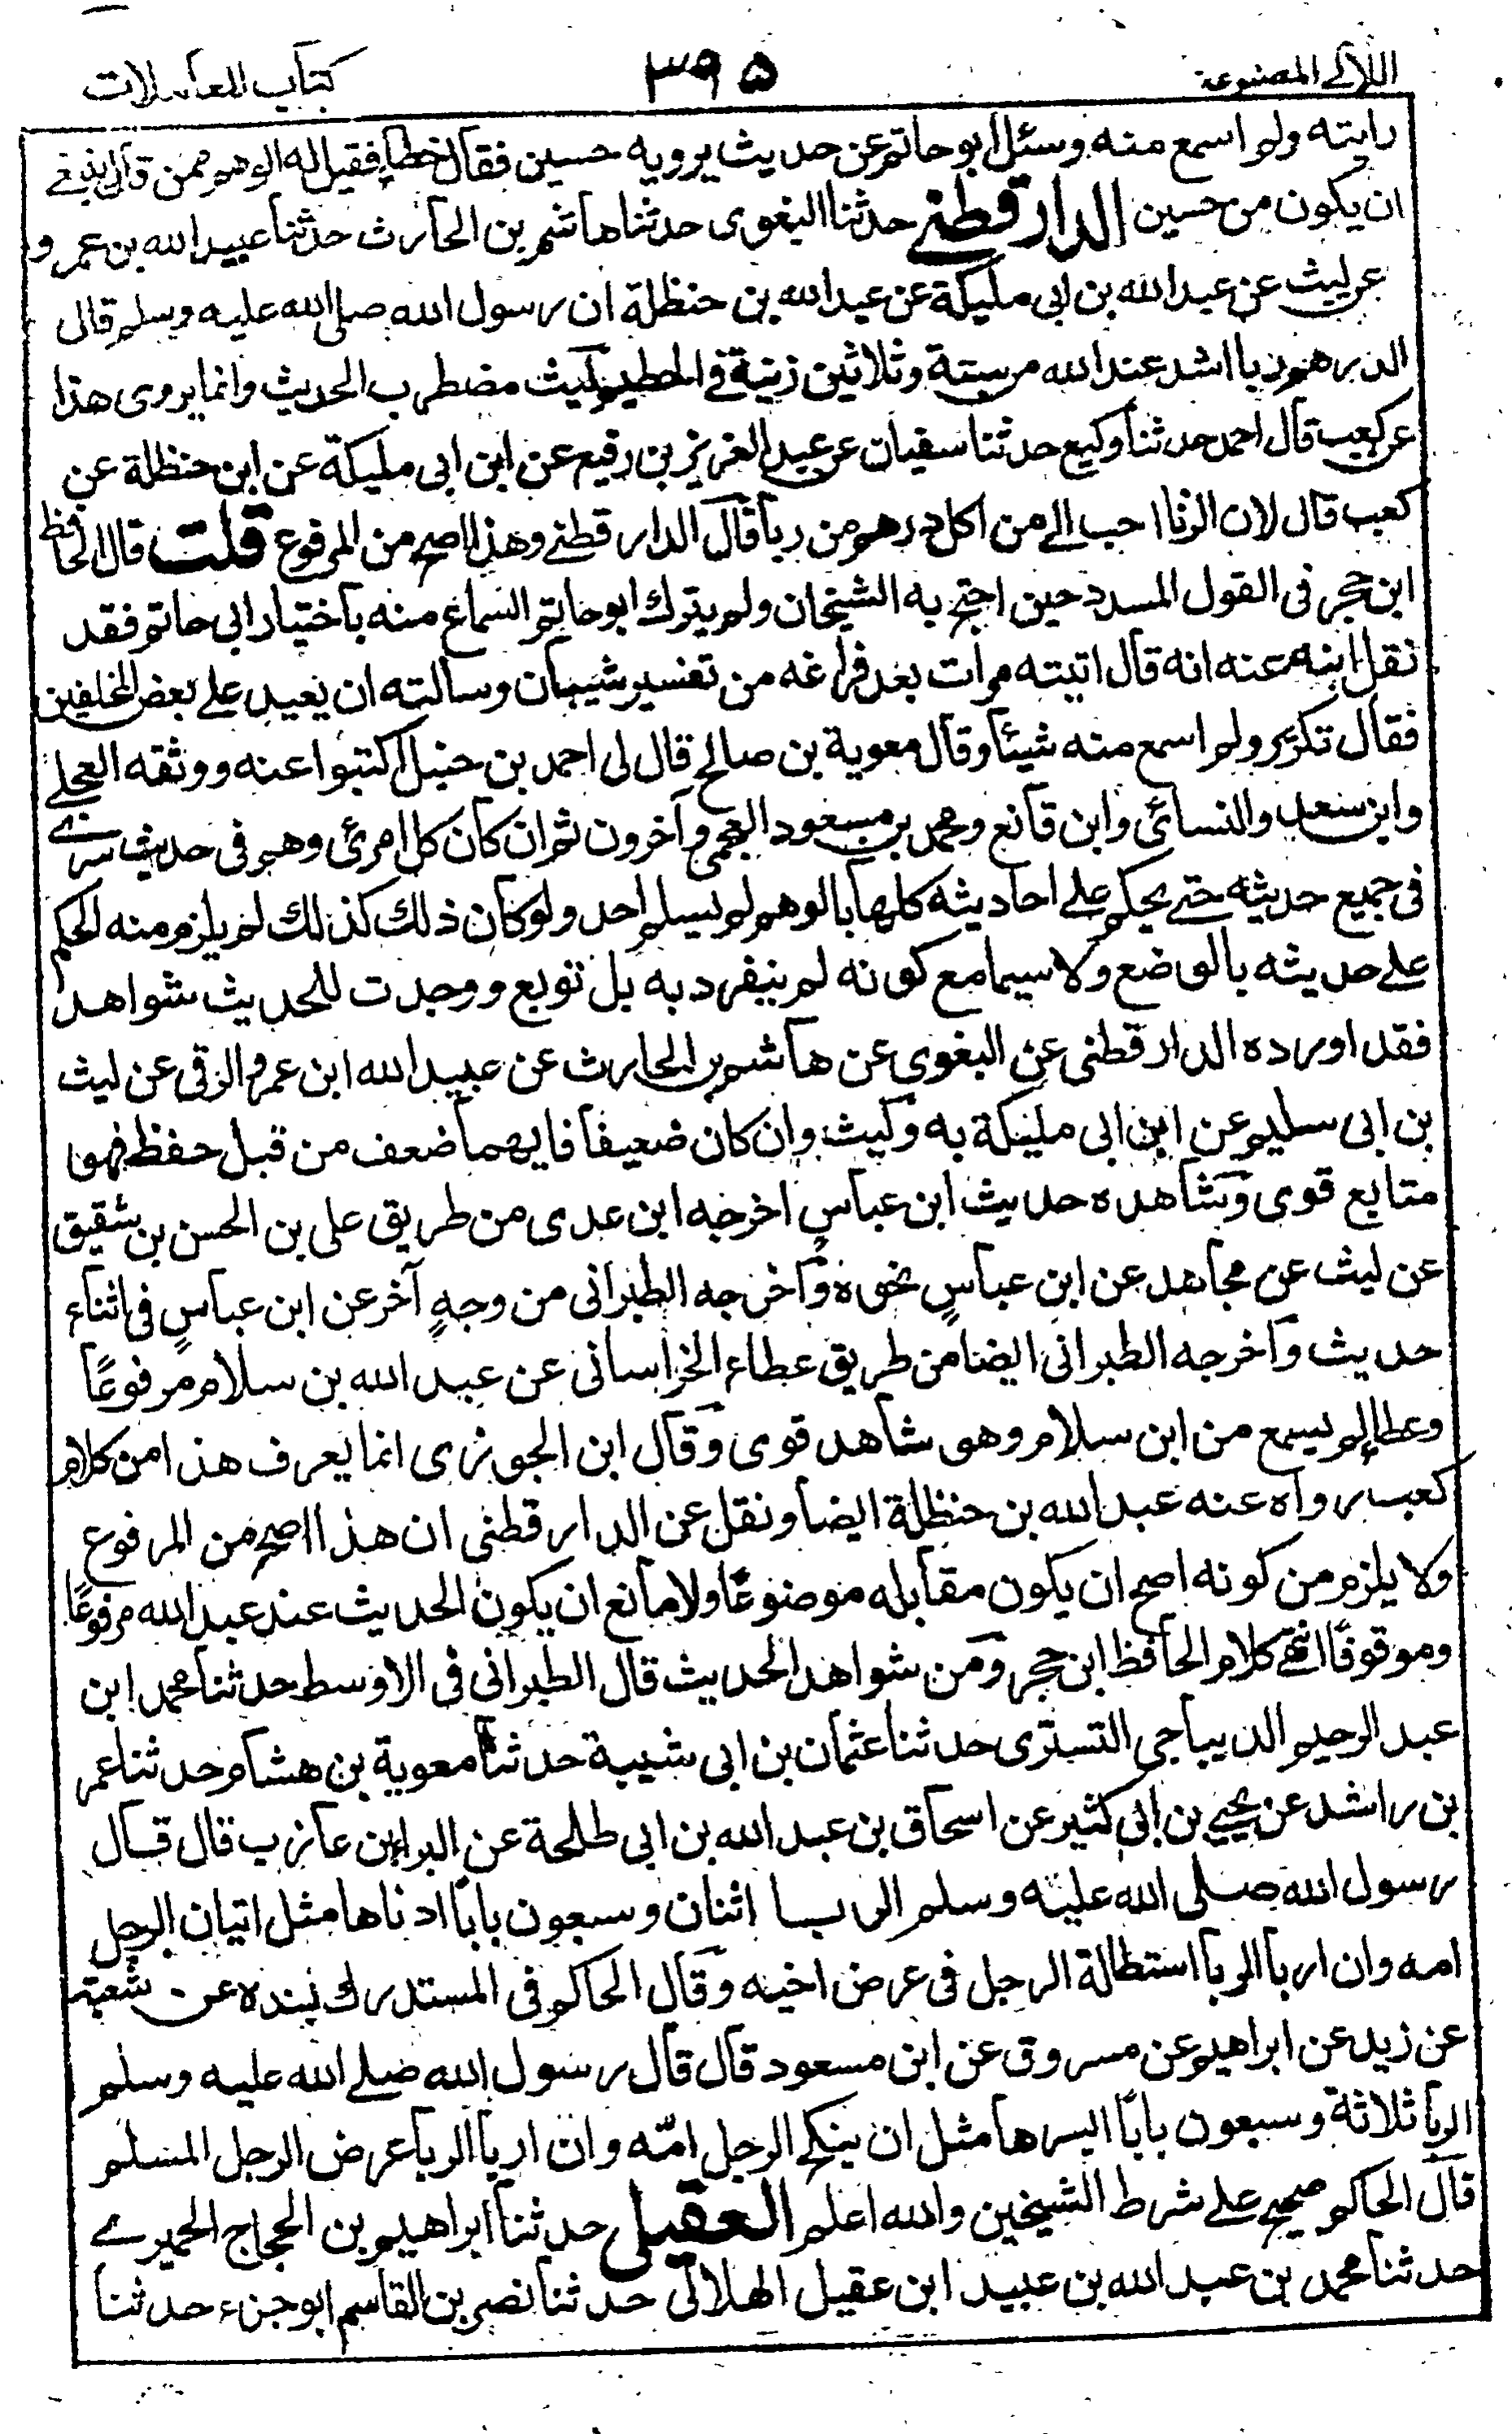 اللآلی المصنوعة
٣٩٥
كتاب المعاملات
رايته ولم اسمع منه وسئل ابو حاتم عن حديث يرويه حسين فقال خطا فقيل له الوهم ممن قال ينبغي
ان يكون من حسين الدارقطني حدثنا البغوى حدثنا هاشم بن الحارث حدثنا عبيد الله بن عمرو
عن ليث عن عبد الله بن ابى مليكة عن عبد الله بن حنظلة ان رسول الله صلى الله عليه وسلم قال
الدرهم ربا اشد عند الله من ستة وثلاثين زنية في الحطيم ليث مضطرب الحديث وانما يروى هذا
عن كعب قال احمد حدثنا وكيع حدثنا سفيان عن عبد العزيز بن رفيع عن ابن ابى مليكة عن ابن حنظلة عن
كعب قال لان الزنا احب الي من اكل درهم من ربا قال الدارقطني وهذا اصح من المرفوع قلت قال الحافظ
ابن حجر فى القول المسدد حين احتج به الشيخان ولم يترك ابو حاتم السماع منه باختيار ابى حاتم فقد
نقل ابنه عنه انه قال اتيته مرات بعد فراغه من تفسير شيبان وسالته ان يعيد علي بعض المخلفين
فقال تكرير ولم اسمع منه شيئا وقال معوية بن صالح قال لى احمد بن حنبل اكتبوا عنه ووثقه العجلي
وابن سعد والنسائى وابن قانع ومحمد بن مسعود العجمى وآخرون ثم ان كان كل امرئ وهم فى حديث سرى
فى جميع حديثه حتى يحكم على احاديثه كلها بالوهم لم يسلم احد ولو كان ذلك كذلك لم يلزم منه الحكم
على حديثه بالوضع ولا سيما مع كونه لم ينفرد به بل توبع ووجدت للحديث شواهد
فقد اورده الدارقطنى عن البغوى عن هاشم بن الحارث عن عبيد الله ابن عمرو الرقى عن ليث
بن ابى سليم عن ابن ابى مليكة به وليث وان كان ضعيفا فايهما ضعف من قبل حفظ فهو
متابع قوى وشاهده حديث ابن عباس اخرجه ابن عدى من طريق على بن الحسن بن شقيق
عن ليث عن مجاهد عن ابن عباسٍ نحوه وآخرجه الطبرانى من وجهٍ آخر عن ابن عباسٍ فى اثناء
حديث وآخرجه الطبرانى ايضا من طريق عطاء الخراسانى عن عبد الله بن سلام مرفوعًا
وعطا لم يسمع من ابن سلام وهو شاهد قوى وقال ابن الجوزى انما يعرف هذا من كلام
كعب رواه عنه عبد الله بن حنظلة ايضا ونقل عن الدارقطنى ان هذا اصح من المرفوع
ولا يلزم من كونه اصح ان يكون مقابله موضوعًا ولا مانع ان يكون الحديث عند عبد الله مرفوعًا
وموقوفًا انتهى كلام الحافظ ابن حجر ومن شواهد الحديث قال الطبرانى فى الاوسط حدثنا محمد ابن
عبد الرحيم الديباجى التسترى حدثنا عثمان بن ابى شيبة حدثنا معوية بن هشام حدثنا عمر
بن راشد عن يحيي بن ابى كثير عن اسحاق بن عبد الله بن ابى طلحة عن البراء بن عازب قال قال
رسول الله صلى الله عليه وسلم الربا اثنان وسبعون بابًا ادناها مثل اتيان الرجل
امه وان اربا الربا استطالة الرجل فى عرض اخيه وقال الحاكم فى المستدرك بسنده عن شعبة
عن زيد عن ابراهيم عن مسروق عن ابن مسعود قال قال رسول الله صلى الله عليه وسلم
الربا ثلاثة وسبعون بابًا ايسرها مثل ان ينكح الرجل امّه وان اربا الربا عرض الرجل المسلم
قال الحاكم صحيح على شرط الشيخين والله اعلم العقيلى حدثنا ابراهيم بن الحجاج الحميرے
حدثنا محمد بن عبد الله بن عبيد ابن عقيل الهلالى حدثنا نصر بن القاسم ابو جزء حدثنا